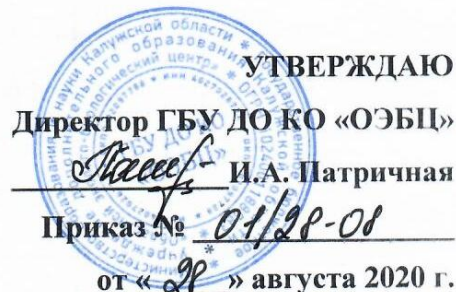 УТВЕРЖДАЮ
Директор ГБУ ДО КО «ОЭБЦ»
И.А. Патричная
Приказ № 01/28-08
от « 28 » августа 2020 г.